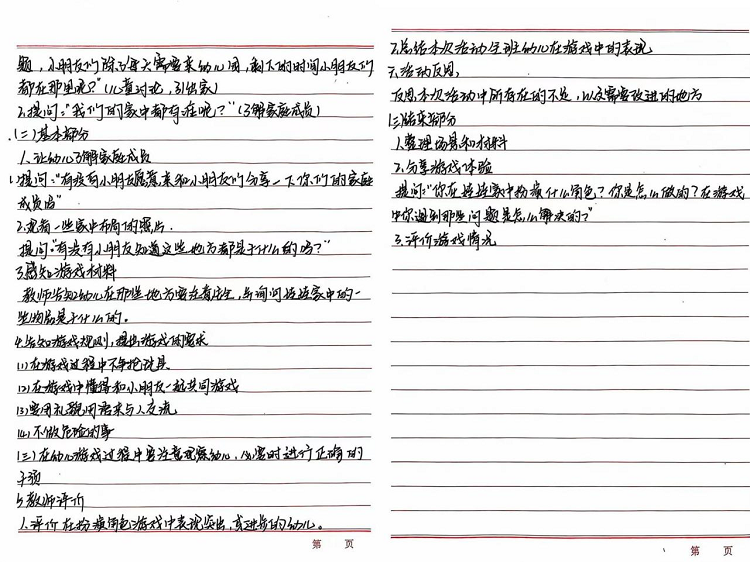 题，小朋友们除了每天需要来幼儿园，剩下的时间小朋友们
都在那里呢？”（儿童讨论，引出家）
2.提问：“我们的家中都有谁呢？”（了解家庭成员）
（二）基本部分
1.让幼儿了解家庭成员
提问：“有没有小朋友愿意来和小朋友们分享一下你们的家庭
成员吗”
2.观看一些家中布局的照片.
提问：“有没有小朋友知道这些地方都是干什么的吗？”
3.感知游戏材料
教师告知幼儿在那些地方要注意安全，与询问娃娃家中的一
些物品是干什么的。
4.告知游戏规则，提出游戏的要求
（1）在游戏过程中不争抢玩具
（2）在游戏中懂得和小朋友一起共同游戏
（3）要用礼貌用语来与人交流
（4）不做危险的事
（三）在幼儿游戏过程中要注意观察幼儿，必要时进行正确的
干预
5.教师评价
1.评价在扮演角色游戏中表现突出，或进步的幼儿。
第 页
2.总结本次活动全班幼儿在游戏中的表现
六、活动反思：
反思本次活动中所存在的不足，以及需要改进的地方
（三）结束部分
1.整理场景和材料
2.分享游戏体验
提问：“你在娃娃家中扮演什么角色？你是怎么做的？在游戏
中你遇到那些问题是怎么解决的？”
3.评价游戏情况
第 页